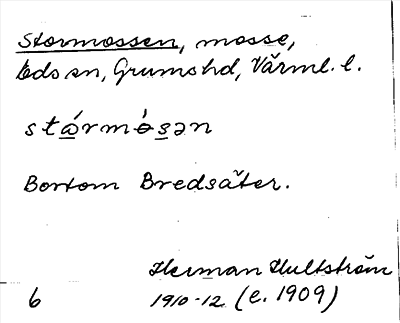 Stormossen, mosse,
Eds sn, Grums hd, Värml. l.
stårmòsən
Bortom Bredsäter.
Herman Hultström
6 1910-12 (e. 1909)